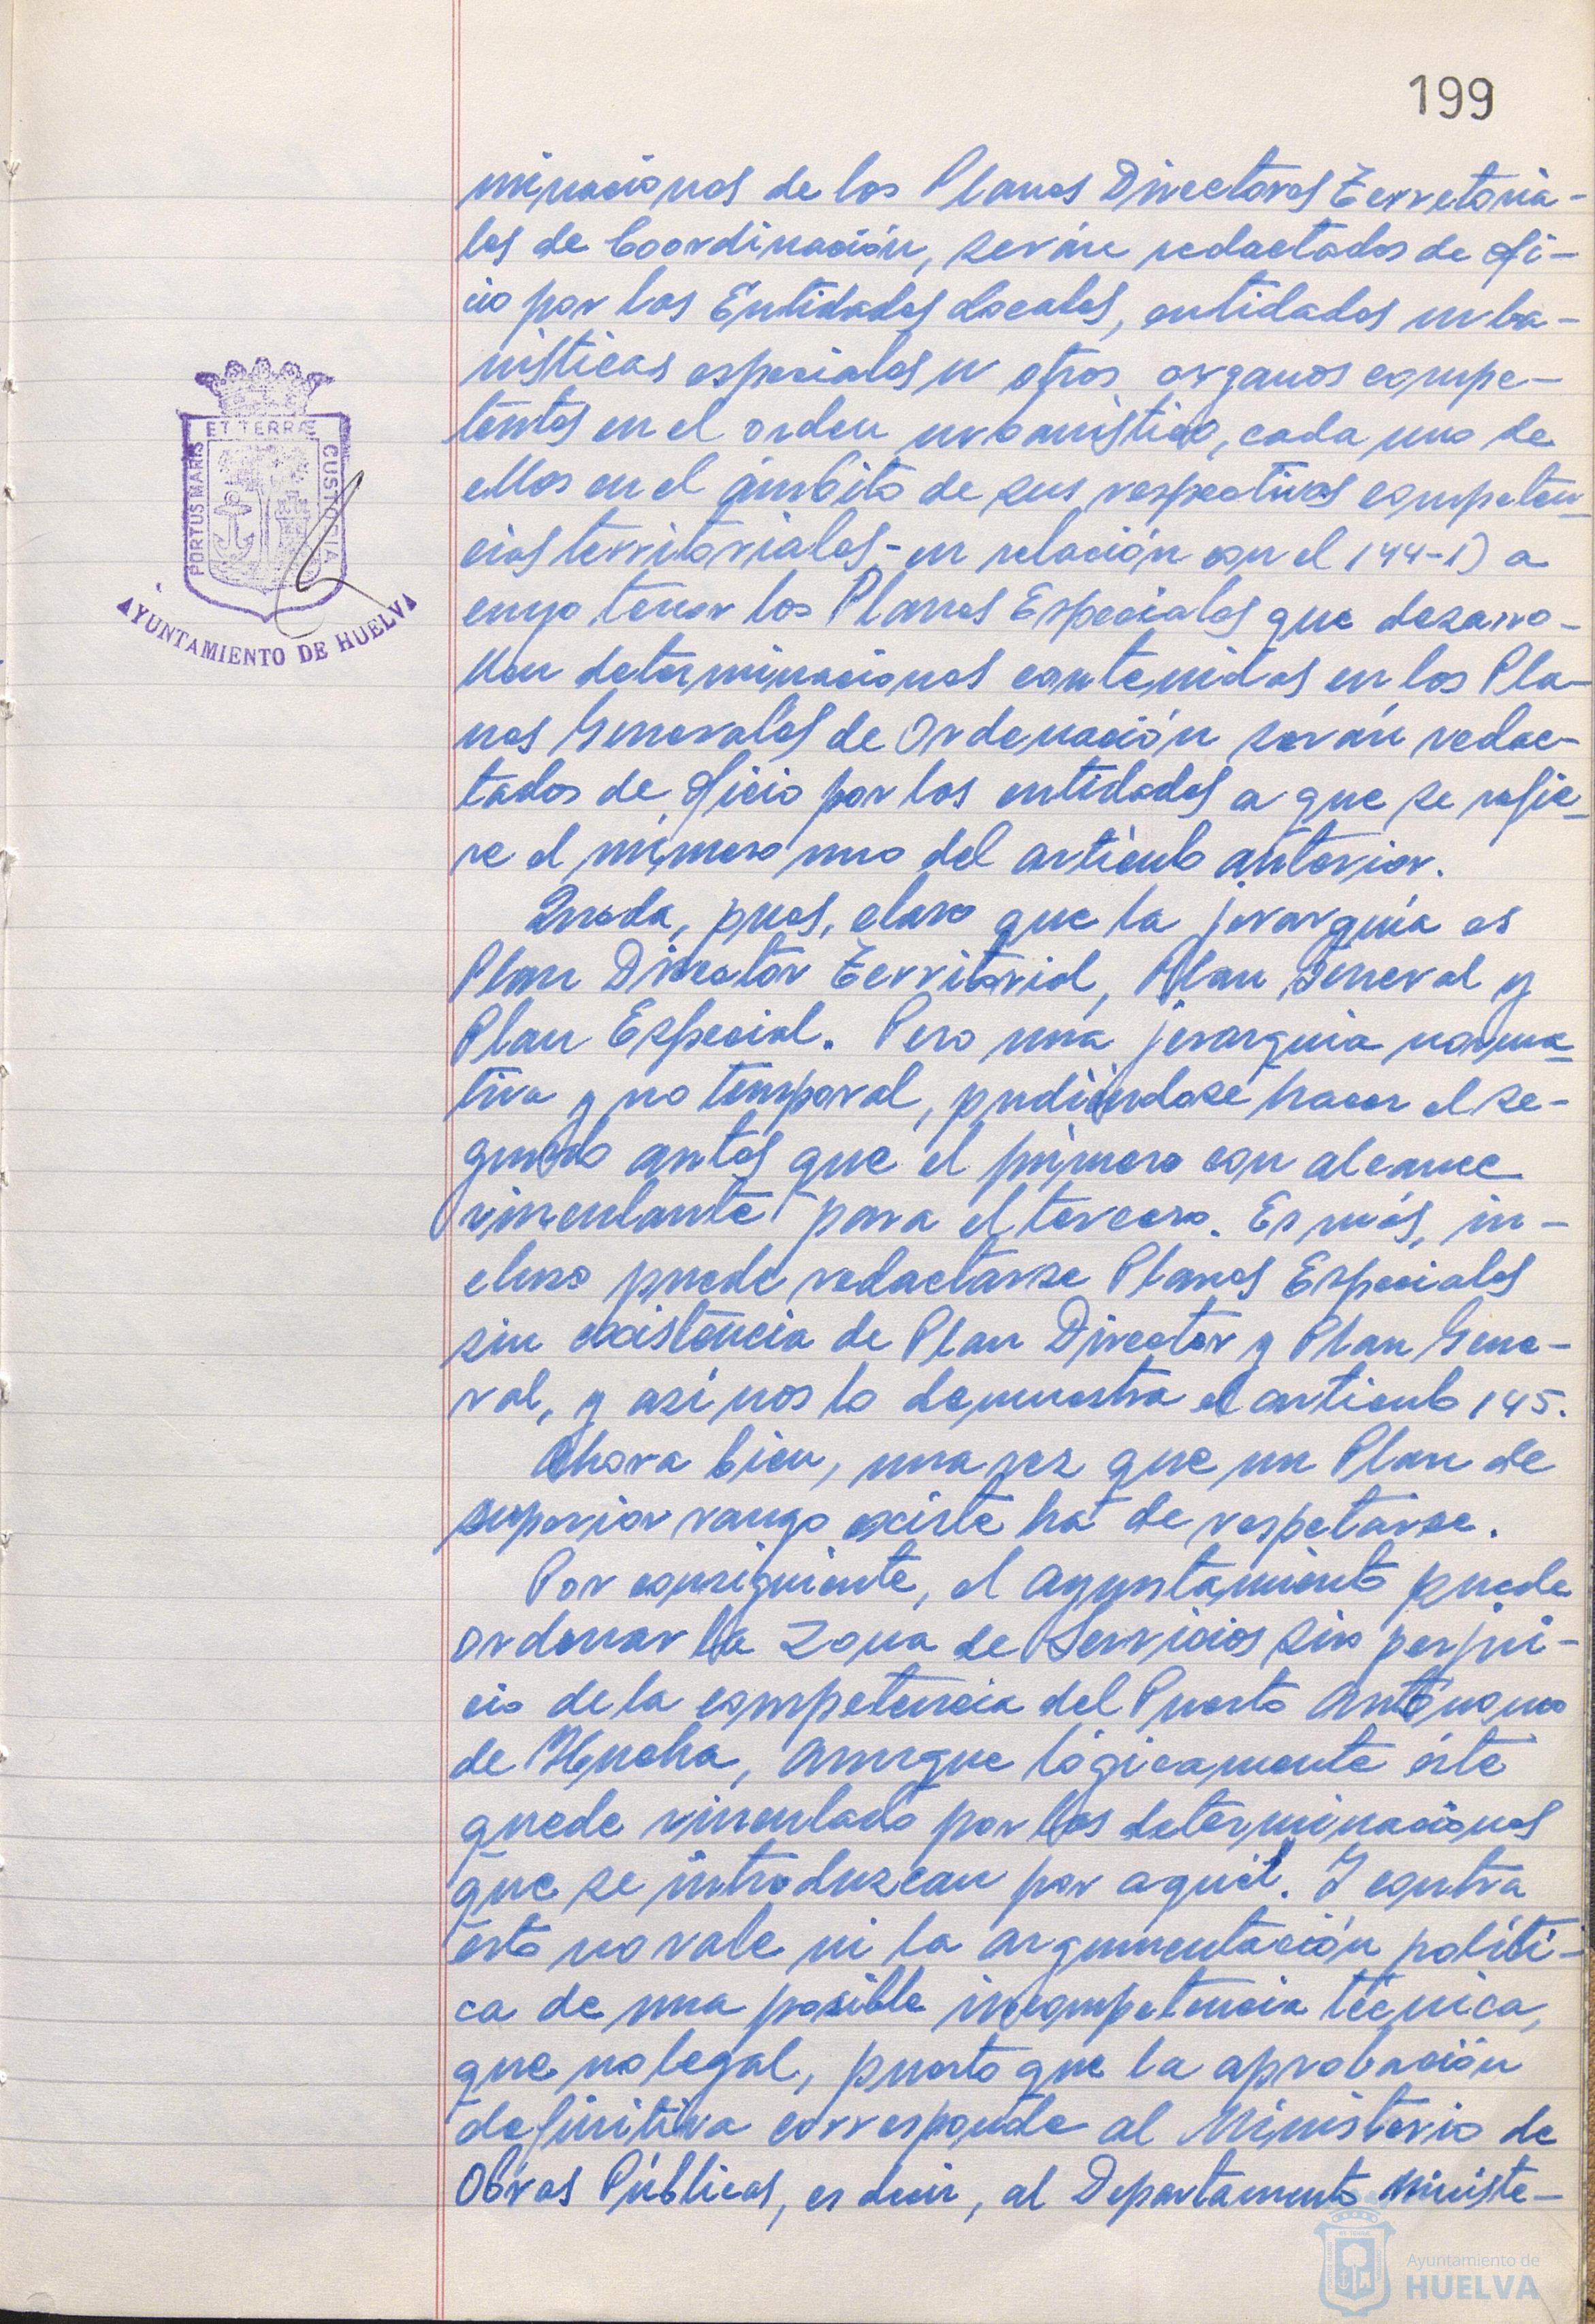 199
minaciones de los Planes Directores Territoria-
les de Coordinación, serán redactados de ofi-
cio por las Entidades Locales, entidades urba-
nísticas especiales u otros organos compe-
tentes en el orden urbanístico, cada uno de
ellos en el ámbito de sus respectivas competen-
cias territoriales- en relación con el 144-1) a
cuyo tenor los Planes Especiales que desarro-
llen determinaciones contenidas en los Pla-
nes Generales de Ordenación serán redac-
tados de oficio por las entidades a que se refie-
re el número uno del artículo anterior.
Queda, pues, claro que la jerarquía es
Plan Director Territorial, Plan General y
Plan Especial. Pero una jerarquía norma-
tiva y no temporal, pudiéndose hacer el se-
gundo antes que el primero con alcance
vinculante para el tercero. Es más, in-
cluso puede redactarse Planes Especiales
sin existencia de Plan Director y Plan Gene-
ral, y así nos lo demuestra el artículo 145.
Ahora bien, una vez que un Plan de
superior rango existe ha de respetarse.
Por consiguiente, el Ayuntamiento puede
ordenar la Zona de Servicios sin perjui-
cio de la competencia del Puerto Autónomo
de Huelva, aunque lógicamente éste
quede vinculado por las determinaciones
que se introduzcan por aquél. Y contra
esto no vale ni la argumentación políti-
ca de una posible incompetencia técnica,
que no legal, puesto que la aprobación
definitiva corresponde al Ministerio de
Obras Públicas, es decir, al Departamento Ministe-
PORTUS MARIS ET TERRÆ CUSTODIA
AYUNTAMIENTO DE HUELVA
Ayuntamiento de
HUELVA